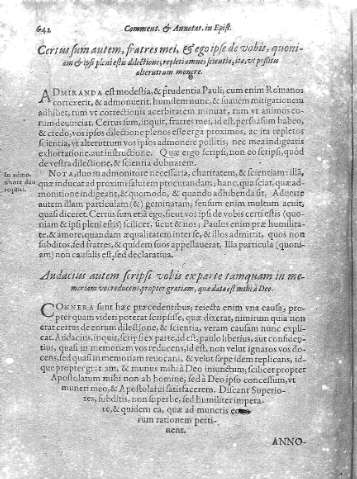 642 Comment. & Annotat. in Epist.
Certus sum autem, fratres mei, & ego ipse de vobis, quoni-
am & ipsi pleni estis dilectione, repleti omni scientia, ita, ut possitis
alterutrum monere.
ADMIRANDA est modestia, & prudentia Pauli, cum enim Romanos
correxerit, & admonuerit, humilem nunc, & suauem mitigationem
adhibet, tum vt correctionis acerbitatem minuat, tum vt animos eo-
rum deuinciat. Certus sum, inquit, fratres mei, id est, persuasum habeo,
& credo, vos ipsos dilectione plenos esse erga proximos, ac ita repletos
scientia, vt alterutrum vos ipsos admonere possitis, nec mea indigeatis
exhortatione, aut instructione. Quæ ergo scripsi, non eo scripsi, quòd
de vestra dilectione, & scientia dubitarem.
NOTA, duo in admonitore necessaria, charitatem, & scientiam: illa,
quæ inducat ad proximi salutem procurandam; hanc, qua sciat, quæ ad-
monitione indigeāt, & quomodo, & quando adhibenda sit. Aduerte
autem illam particulam (&) geminatam, sensum enim multum acuit,
quasi diceret. Certus sum etiā ego, sicut vos ipsi de vobis certi estis (quo-
niam & ipsi pleni estis) scilicet, sicut & nos; Paulus enim præ humilita-
te, & amore, quandam æqualitatem inter se, & illos admittit, quos non
subditos, sed fratres, & quidem suos appellauerat. Illa particula (quoni-
am) non causalis est, sed declaratiua.
Audacius autem scripsi vobis ex parte tamquam in me-
moriam vos reducens, propter gratiam, quæ data est mihi à Deo.
CONNEXA sunt hæc præcedentibus, reiecta enim vna causa, pro-
pter quam videri poterat scripsisse, quæ dixerat, nimirum quia non
etat certus de eorum dilectione, & scientia, veram causam nunc expli-
cat. Audacius, inquit, scripsi ex parte, id est, paulo liberius, aut confidep-
tius, quasi in memoriam vos reducens, id est, non velut ignaros vos do-
cens, sed quasi in memoriam reuocans, & velut sæpe idem replicans, id-
que propter gratiam, & munus mihi à Deo iniunctum, scilicet propter
Apostolatum mihi non ab homine, sed à Deo ipso concessum, vt
muneri meo, & Apostolatui satisfacerem. Discant Superio-
res, subditis, non superbe, sed humiliter impera-
te, & quidem ea, quæ ad muneris
rum rationem perti-
nent.
ANNO-